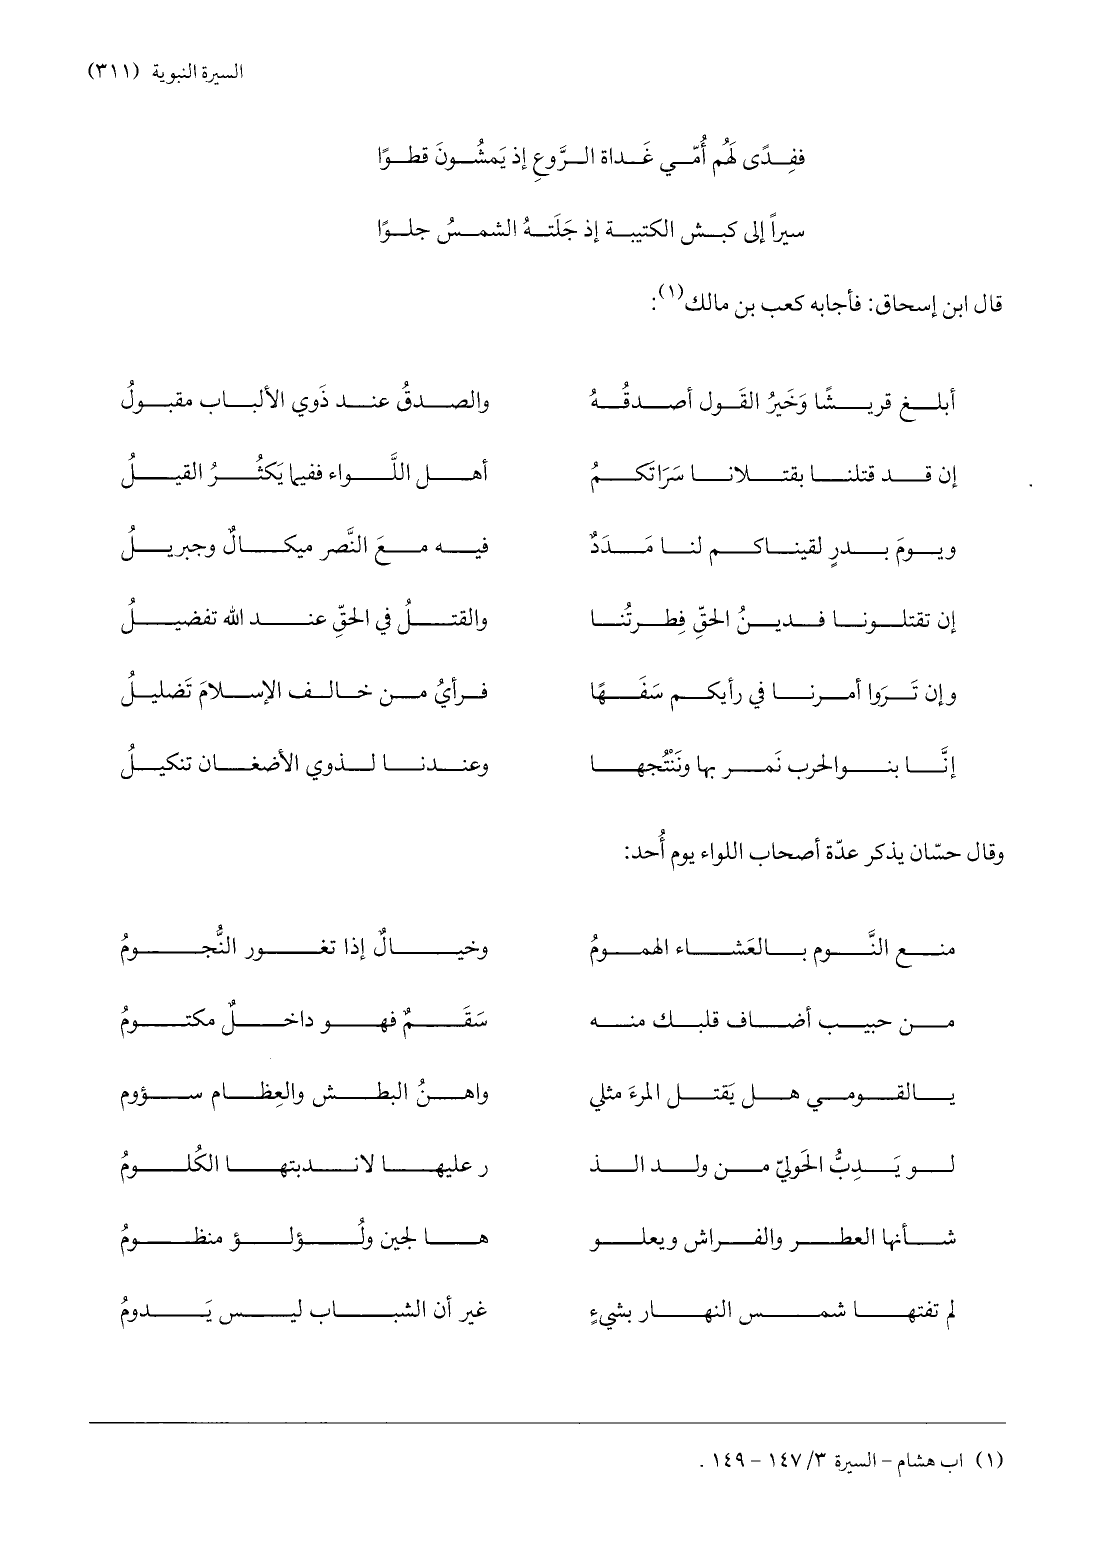 السيرة النبوية (٣١١)
ففِدًى لَهُم أُمّي غَداة الرَّوعِ إذ يَمشُونَ قطوًا
سيراً إلى كبش الكتيبة إذ جَلَتهُ الشمسُ جلوًا
قال ابن إسحاق: فأجابه كعب بن مالك(١):
أبلغ قريشًا وَخَيرُ القَول أصدقُهُ والصدقُ عند ذَوي الألباب مقبولُ
إن قد قتلنا بقتلانا سَرَاتَكمُ أهل اللَّواء ففيما يَكثُرُ القيلُ
ويومَ بدرٍ لقيناكم لنا مَدَدٌ فيه معَ النَّصر ميكالٌ وجبريلُ
إن تقتلونا فدينُ الحقِّ فِطرتُنا والقتلُ في الحقِّ عند الله تفضيلُ
وإن تَرَوا أمرنا في رأيكم سَفَهًا فرأيُ من خالف الإسلامَ تَضليلُ
إنَّا بنوالحرب نَمر بها ونَنْتُجها وعندنا لذوي الأضغان تنكيلُ
وقال حسّان يذكر عدّة أصحاب اللواء يوم أُحد:
منع النَّوم بالعَشاء الهمومُ وخيالٌ إذا تغور النُّجومُ
من حبيب أضاف قلبك منه سَقَمٌ فهو داخلٌ مكتومُ
يالقومي هل يَقتل المرءَ مثلي واهنُ البطش والعِظام سؤوم
لو يَدِبُّ الحَوليّ من ولد الذ ر عليها لاندبتها الكُلومُ
شأنها العطر والفراش ويعلو ها لجين ولُؤلؤ منظومُ
لم تفتها شمس النهار بشيءٍ غير أن الشباب ليس يَدومُ
(١) اب هشام - السيرة ٣/ ١٤٧ - ١٤٩ .